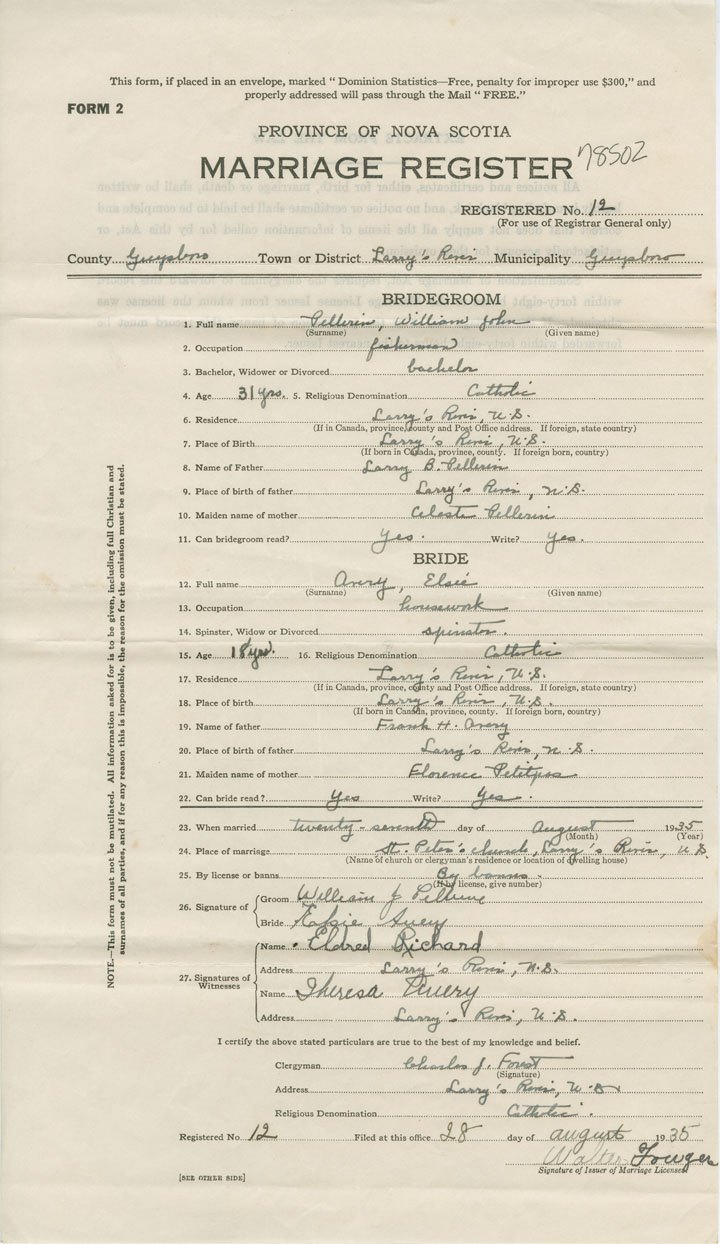 This form, if placed in an envelope, marked “ Dominion Statistics—Free, penalty for improper use $300,” and
properly addressed will pass through the Mail “ FREE.”
FORM 2
PROVINCE OF NOVA SCOTIA
MARRIAGE REGISTER 78502
REGISTERED No. 12
(For use of Registrar General only)
County Guysboro Town or District Larry's River Municipality Guysboro
BRIDEGROOM
1. Full name Pellerin, William John
(Surname) (Given name)
2. Occupation fisherman
3. Bachelor, Widower or Divorced bachelor
4. Age 31 yrs. 5. Religious Denomination Catholic
6. Residence Larry's River, N.S.
(If in Canada, province, county and Post Office address. If foreign, state country)
7. Place of Birth Larry's River, N.S.
(If born in Canada, province, county. If foreign born, country)
8. Name of Father Larry B. Pellerin
9. Place of birth of father Larry's River, N.S.
10. Maiden name of mother Celeste Pellerin
11. Can bridegroom read? Yes. Write? Yes.
BRIDE
12. Full name Avery, Elsie
(Surname) (Given name)
13. Occupation housework
14. Spinster, Widow or Divorced spinster.
15. Age 18 yrs. 16. Religious Denomination Catholic
17. Residence Larry's River, N.S.
(If in Canada, province, county and Post Office address. If foreign, state country)
18. Place of birth Larry's River, N.S.
(If born in Canada, province, county. If foreign born, country)
19. Name of father Frank H. Avery
20. Place of birth of father Larry's River, N.S.
21. Maiden name of mother Florence Petitpas
22. Can bride read? Yes Write? Yes.
23. When married twenty-seventh day of August 1935
(Month) (Year)
24. Place of marriage St. Peter's church, Larry's River, N.S.
(Name of church or clergyman's residence or location of dwelling house)
25. By license or banns By banns.
(If by license, give number)
26. Signature of Groom William J
Bride Avery
27. Signatures of Witnesses
Name Eldred Richard
Address Larry's River, N.S.
Name Theresa Avery
Address Larry's River, N.S.
I certify the above stated particulars are true to the best of my knowledge and belief.
Clergyman Charles J. Forest
(Signature)
Address Larry's River, N.S.
Religious Denomination Catholic.
Registered No. 12 Filed at this office 28 day of august 1935
Walter
Signature of Issuer of Marriage Licenses
[SEE OTHER SIDE]
NOTE.—This form must not be mutilated. All information asked for is to be given, including full Christian and
surnames of all parties, and if for any reason this is impossible, the reason for the omission must be stated.